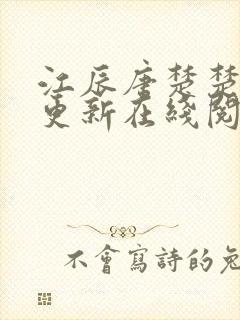 江辰唐楚楚
更新在线阅
不會寫詩的兔